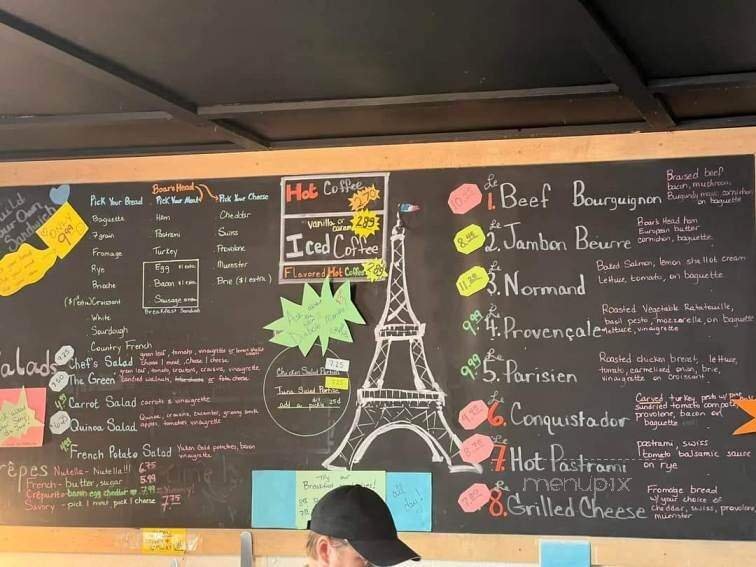 Build
Your Own
Sandwich
9.99
Boar's Head
Pick Your Bread
Pick Your Meat
Pick Your Cheese
Baguette
Ham
Cheddar
7 grain
Pastrami
Swiss
Fromage
Turkey
Provolone
Rye
Egg $1 extra
Muenster
Brioche
Bacon $1 extra
Brie ($1 extra)
Croissant
Sausage
Breakfast Sandwich
White
Sourdough
Country French
Hot Coffee
Vanilla or
2.89
Iced Coffee
Flavored Hot Coffee
Salads
Chef's Salad
choose 1 meat, choose 1 cheese
The Green
Carrot Salad carrots & vinaigrette
Quinoa Salad
Quinoa, craisins, cucumber, granny smith
apples, tomatoes, vinaigrette
French Potato Salad Yukon Gold potatoes, bacon
vinaigrette
Crêpes
Nutella - Nutella!!! 6.75
French - butter, sugar 5.99
bacon egg cheddar
Savory - pick 1 meat pick 1 cheese 7.75
7.25
Chicken Salad Portion
Tuna Salad Portion
add a
Le
1. Beef Bourguignon
Braised beef
bacon, mushroom,
Burgundy mayo, cornichon
on baguette
Le
2. Jambon Beurre
Boars Head ham
European butter
cornichon, baguette
Le
3. Normand
Baked Salmon, lemon shallot cream
Lettuce, tomato, on baguette
9.99
Le
4. Provençale
Roasted Vegetable Ratatouille,
basil pesto, mozzarella, on baguette
lettuce, vinaigrette
9.99
Le
5. Parisien
Roasted chicken breast, lettuce,
tomato, carmelized onion, brie,
vinaigrette on croissant
Le
6. Conquistador
Carved turkey, pesto
sundried tomato compote
provolone, bacon on
baguette
Le
7. Hot Pastrami
pastrami, swiss
tomato balsamic sauce
on rye
Le
8. Grilled Cheese
Fromage bread
w/ your choice of
cheddar, swiss, provolone
muenster
all
day!
menupix